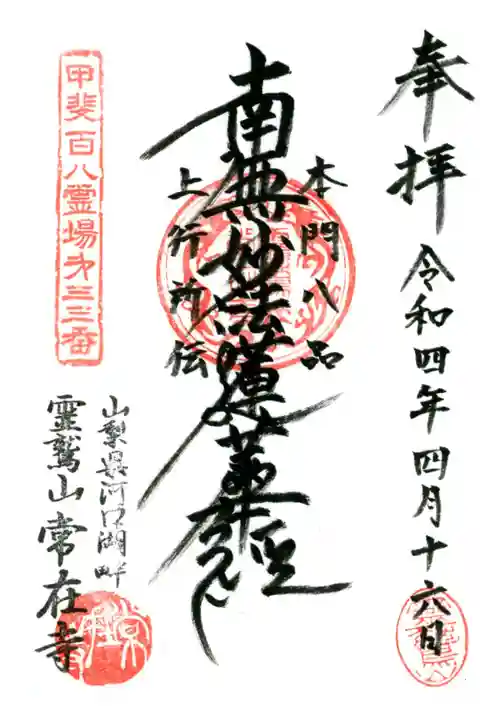 奉拝
令和四年四月十六日
本門八品
南無妙法蓮華経
上行所伝
甲斐百八霊場第三三番
山梨県河口湖畔
霊鷲山 常在寺